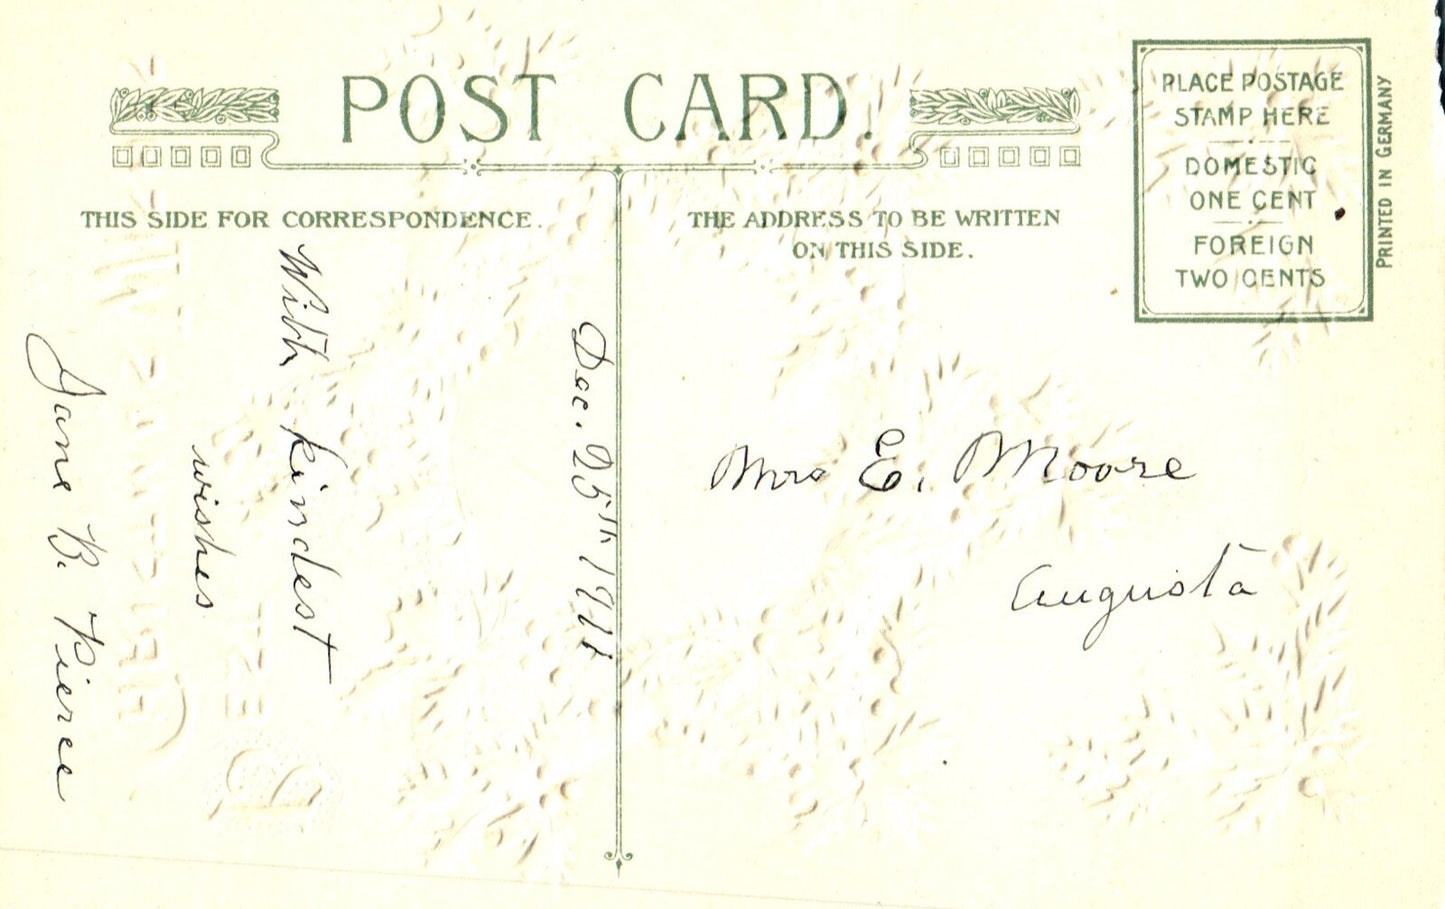 POST CARD.
THIS SIDE FOR CORRESPONDENCE.
THE ADDRESS TO BE WRITTEN
ON THIS SIDE.
PLACE POSTAGE
STAMP HERE
DOMESTIC
ONE CENT
FOREIGN
TWO CENTS
PRINTED IN GERMANY
Dec. 25th 1911
With kindest
wishes
Jane B. Pierce
Mrs E. Moore
Augusta